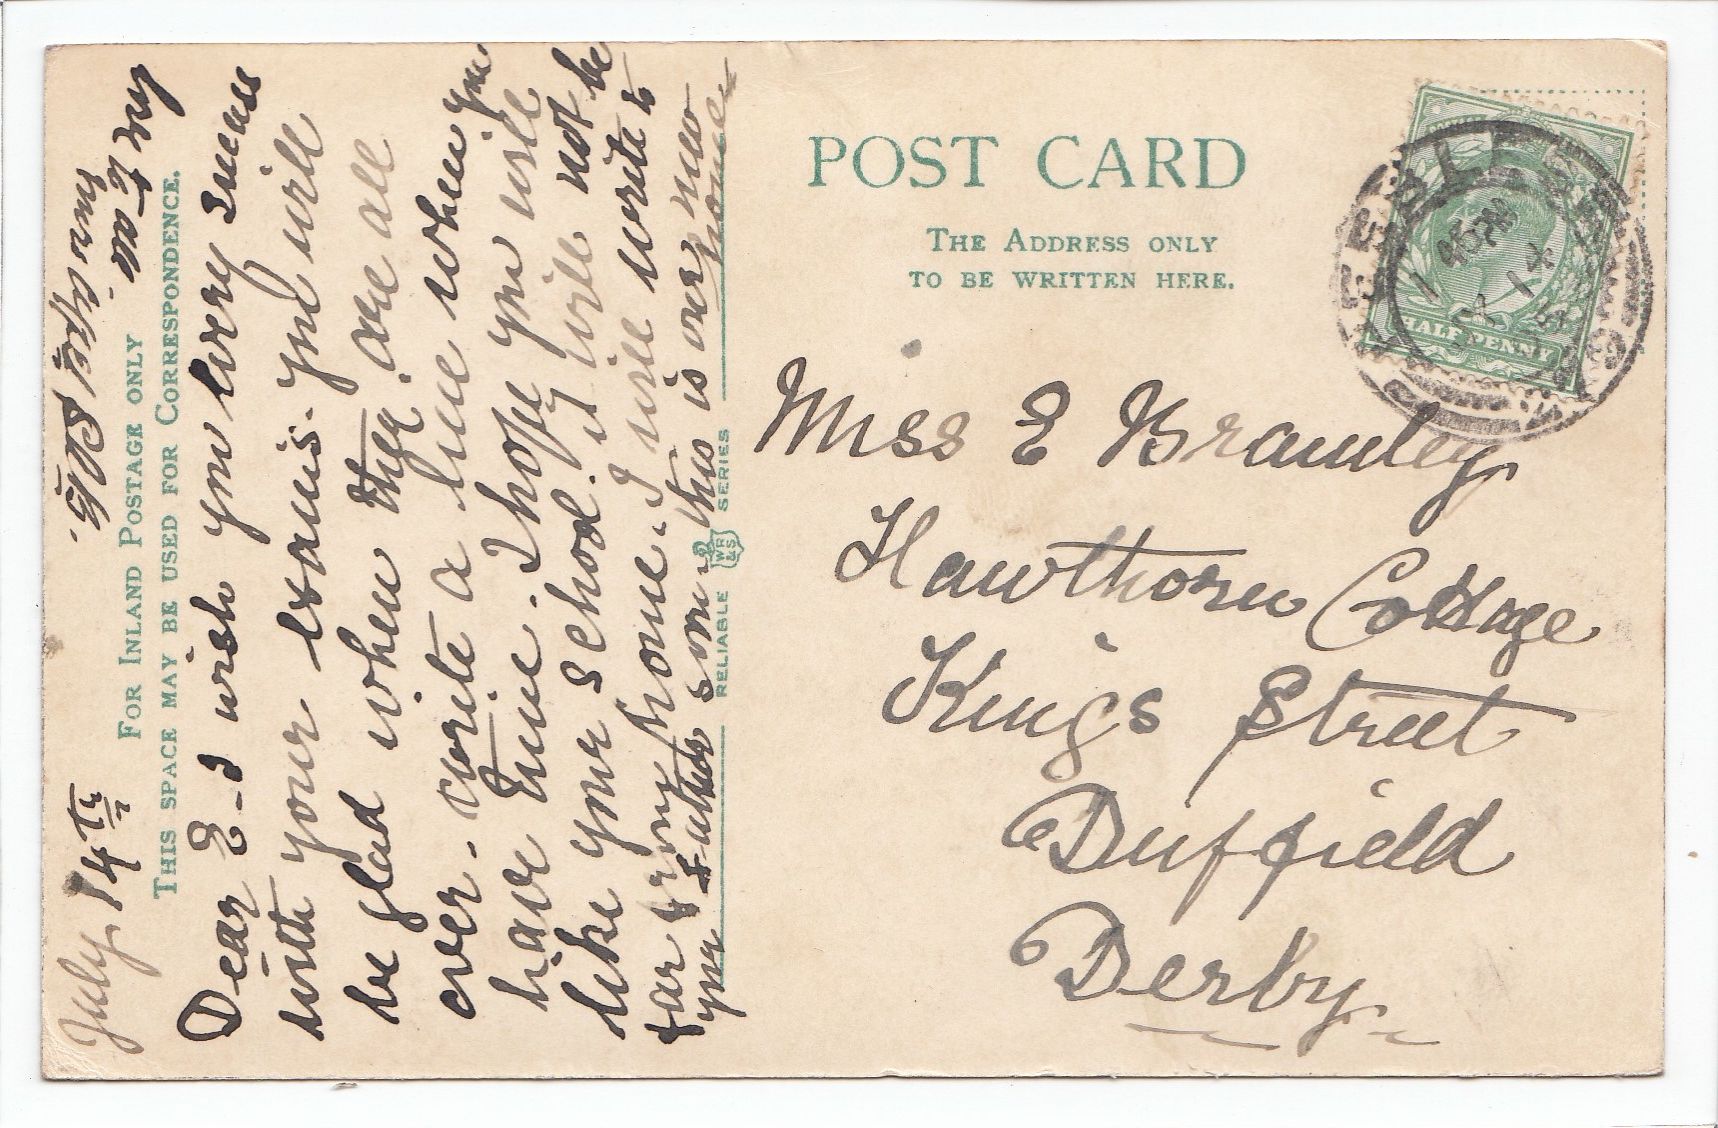 July 14th
FOR INLAND POSTAGE ONLY
THIS SPACE MAY BE USED FOR CORRESPONDENCE.
Dear E - I wish you every success
with your exams. you will
be glad when they are all
over. write a line when you
have time. I hope you will
like your school. it will not be
far from home. I will write to
your Father soon this is our new
home
love to all
from
RELIABLE WR & S SERIES
POST CARD
THE ADDRESS ONLY
TO BE WRITTEN HERE.
HALFPENNY
PEEBLES
Miss E Bramley
Hawthorn Cottage
King's Street
Duffield
Derby